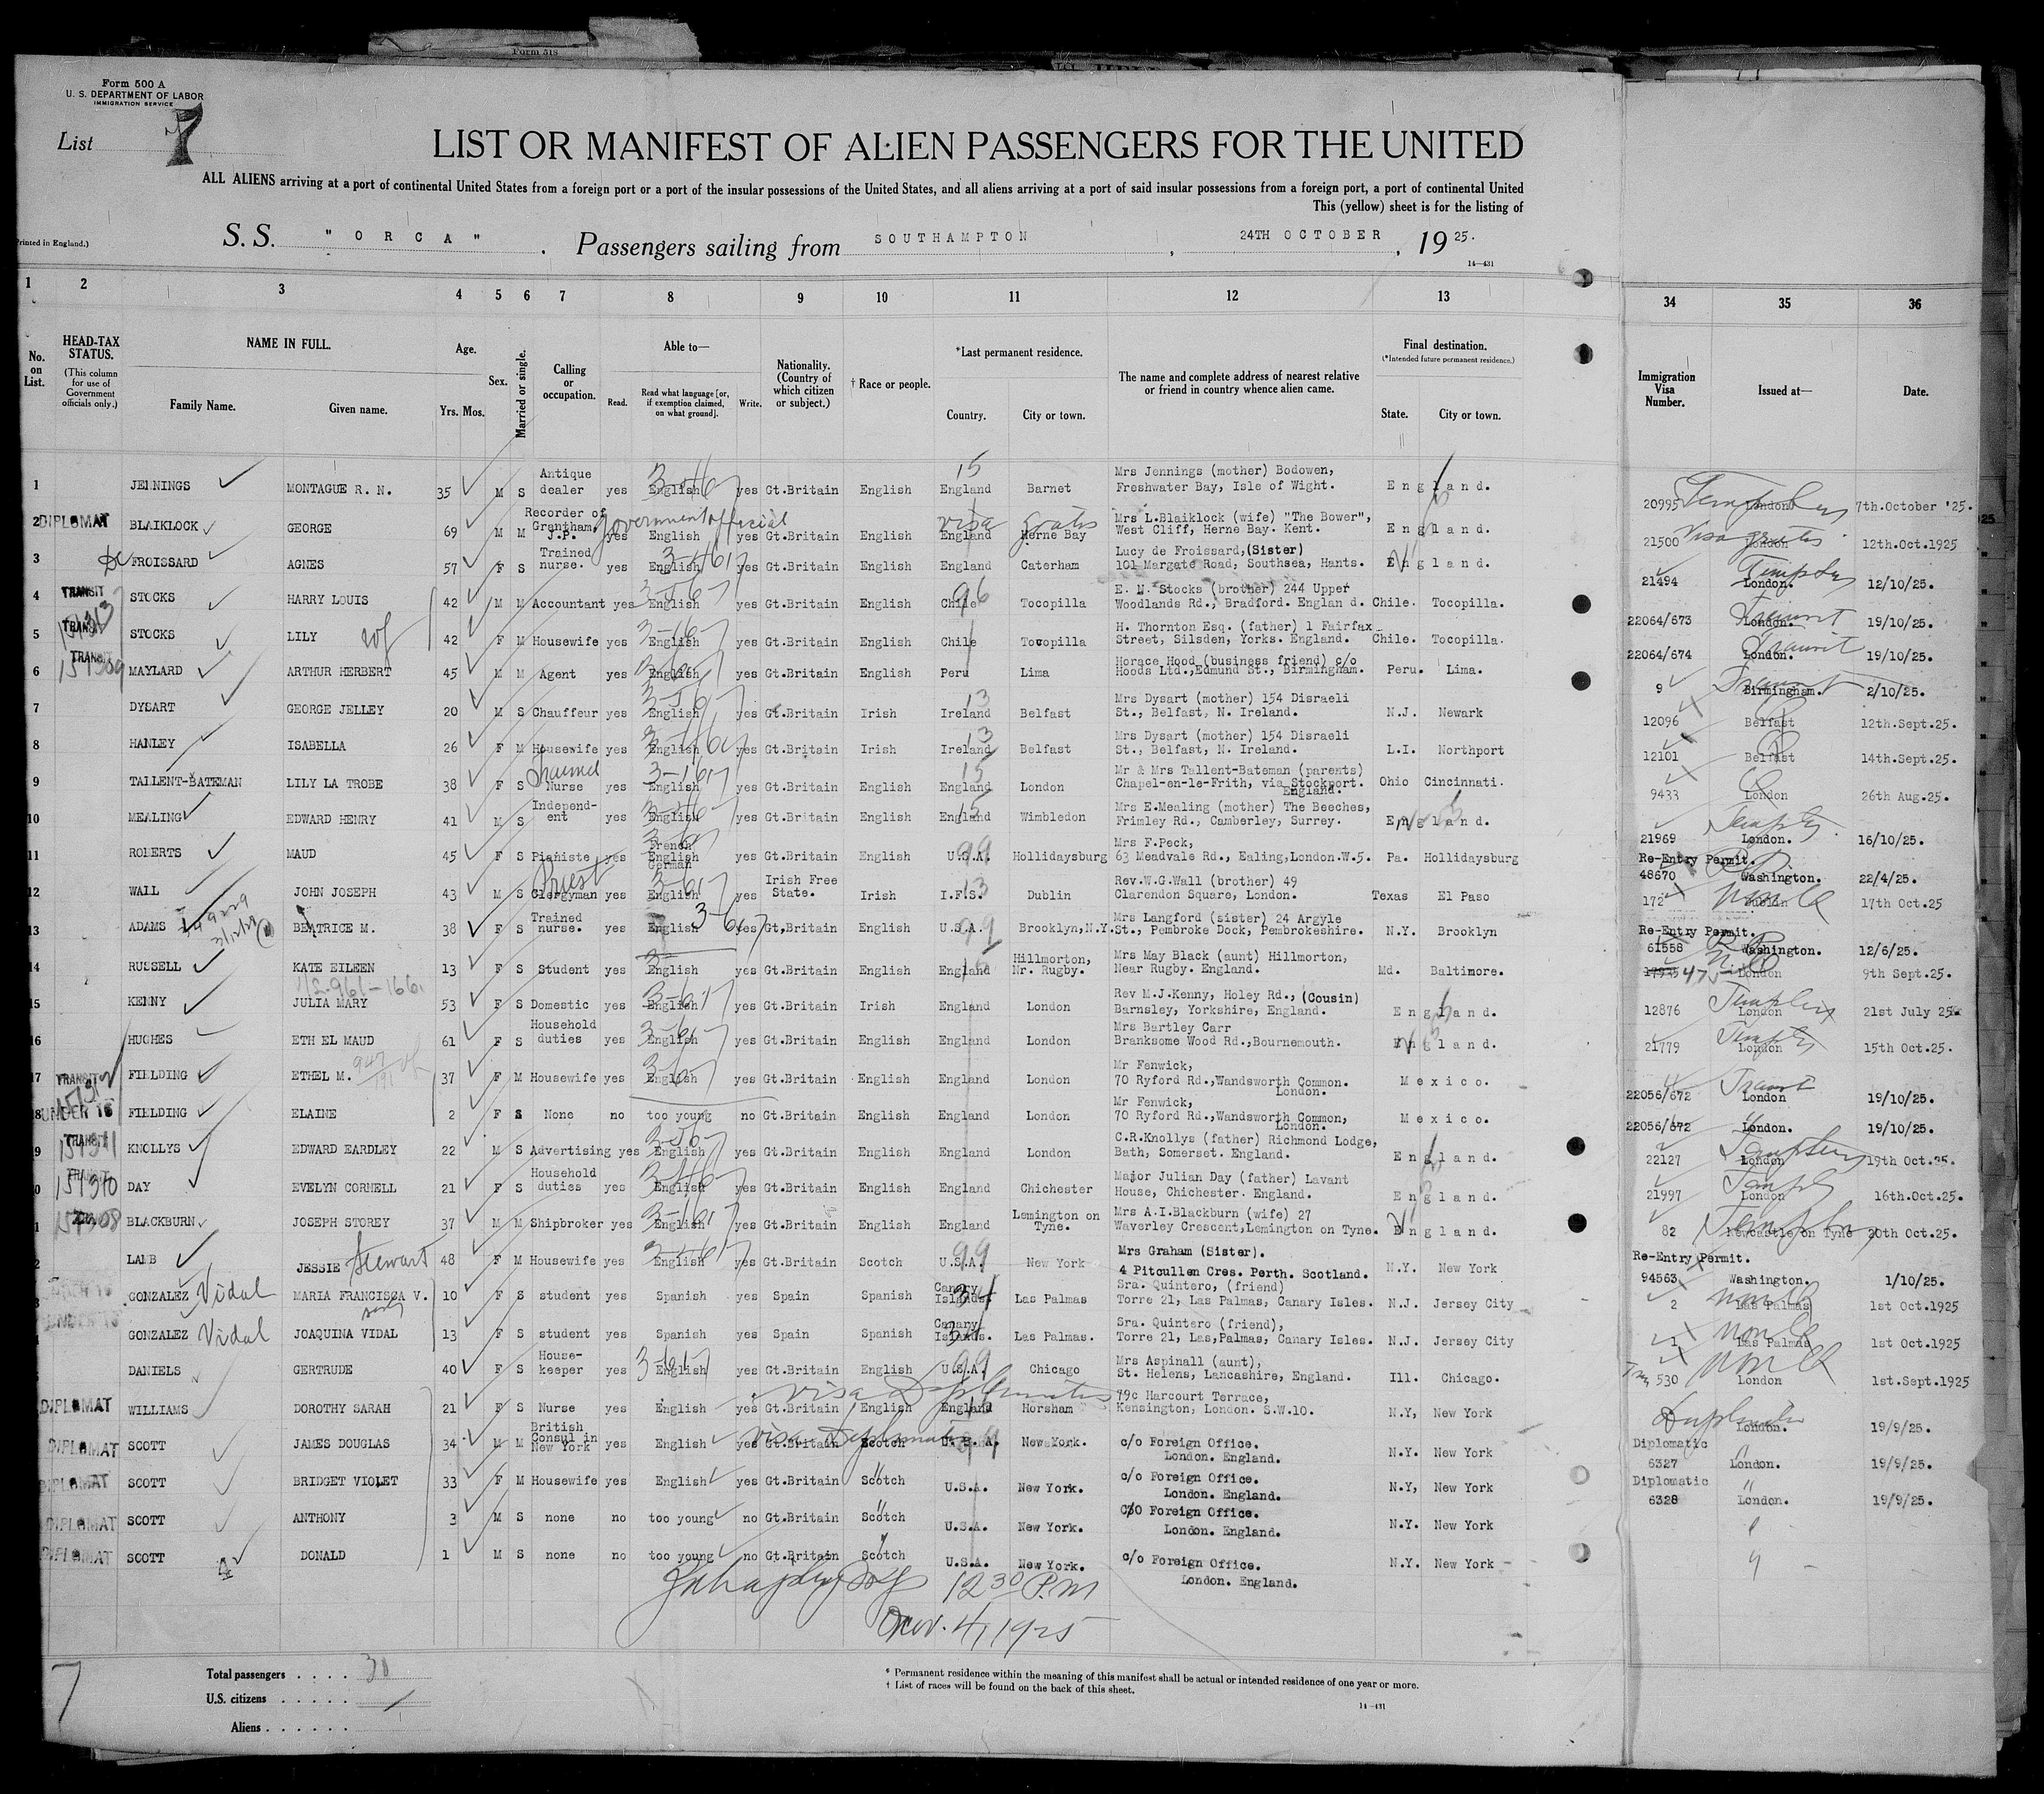 Form 518
Form 500 A
U. S. DEPARTMENT OF LABOR
IMMIGRATION SERVICE
List 7
LIST OR MANIFEST OF ALIEN PASSENGERS FOR THE UNITED
ALL ALIENS arriving at a port of continental United States from a foreign port or a port of the insular possessions of the United States, and all aliens arriving at a port of said insular possessions from a foreign port, a port of continental United
This (yellow) sheet is for the listing of
Printed in England.)
S. S. "ORCA". Passengers sailing from SOUTHAMPTON, 24TH OCTOBER, 19 25.
14—431
1 2 3 4 5 6 7 8 9 10 11 12 13 34 35 36
No. on List. HEAD-TAX STATUS. (This column for use of Government officials only.) NAME IN FULL. Family Name. Given name. Age. Yrs. Mos. Sex. Married or single. Calling or occupation. Able to— Read. Read what language [or, if exemption claimed, on what ground]. Write. Nationality. (Country of which citizen or subject.) † Race or people. *Last permanent residence. Country. City or town. The name and complete address of nearest relative or friend in country whence alien came. Final destination. (*Intended future permanent residence.) State. City or town. Immigration Visa Number. Issued at— Date.
1 JENNINGS MONTAGUE R. N. 35 M S Antique dealer yes English yes Gt.Britain English 15 England Barnet Mrs Jennings (mother) Bodowen, Freshwater Bay, Isle of Wight. England. 20995 London 7th.October '25.
2 DIPLOMAT BLAIKLOCK GEORGE 69 M M Recorder of Grantham, J.P. government official yes English yes Gt.Britain English visa gratis England Herne Bay Mrs L.Blaiklock (wife) "The Bower", West Cliff, Herne Bay. Kent. England. 21500 visa gratis London 12th.Oct.1925
3 De FROISSARD AGNES 57 F S Trained nurse. yes English yes Gt.Britain English England Caterham Lucy de Froissard,(Sister) 101 Margate Road, Southsea, Hants. England. 21494 London. 12/10/25.
4 TRANSIT STOCKS HARRY LOUIS 42 M M Accountant yes English yes Gt.Britain English 96 Chile Tocopilla E. N. Stocks (brother) 244 Upper Woodlands Rd., Bradford. Englan d. Chile. Tocopilla. 22064/673 Transit London. 19/10/25.
5 TRANSIT STOCKS LILY 42 F M Housewife yes English yes Gt.Britain English Chile Tocopilla H. Thornton Esq. (father) 1 Fairfax Street, Silsden, Yorks. England. Chile. Tocopilla. 22064/674 Transit London. 19/10/25.
6 TRANSIT MAYLARD ARTHUR HERBERT 45 M M Agent yes English yes Gt.Britain English Peru Lima Horace Hood (business friend) c/o Hoods Ltd.,Edmund St., Birmingham. Peru. Lima. 9 Transit Birmingham. 2/10/25.
7 DYSART GEORGE JELLEY 20 M S Chauffeur yes English yes Gt.Britain Irish 13 Ireland Belfast Mrs Dysart (mother) 154 Disraeli St., Belfast, N. Ireland. N.J. Newark 12096 Belfast 12th.Sept.25.
8 HANLEY ISABELLA 26 F M Housewife yes English yes Gt.Britain Irish 13 Ireland Belfast Mrs Dysart (mother) 154 Disraeli St., Belfast, N. Ireland. L.I. Northport 12101 Belfast 14th.Sept.25.
9 TALLENT-BATEMAN LILY LA TROBE 38 F S Trained Nurse yes English yes Gt.Britain English 15 England London Mr & Mrs Tallent-Bateman (parents) Chapel-en-le-Frith, via Stockport. England. Ohio Cincinnati. 9433 London 26th Aug.25.
10 MEALING EDWARD HENRY 41 M S Independ-ent yes English yes Gt.Britain English 15 England Wimbledon Mrs E.Mealing (mother) The Beeches, Frimley Rd., Camberley, Surrey. England. 21969 London. 16/10/25.
11 ROBERTS MAUD 45 F S Pianiste yes French English German yes Gt.Britain English 99 U.S.A. Hollidaysburg Mrs F.Peck, 63 Meadvale Rd., Ealing,London.W.5. Pa. Hollidaysburg Re-Entry Permit. 48670 Washington. 22/4/25.
12 WALL JOHN JOSEPH 43 M S Priest Clergyman yes English yes Irish Free State. Irish 13 I.F.S. Dublin Rev.W.G.Wall (brother) 49 Clarendon Square, London. Texas El Paso 172 17th Oct.25
13 ADAMS BEATRICE M. 38 F S Trained nurse. yes English yes Gt,Britain English 99 U.S.A. Brooklyn,N.Y. Mrs Langford (sister) 24 Argyle St., Pembroke Dock, Pembrokeshire. N.Y. Brooklyn Re-Entry Permit. 61558 Washington. 12/6/25.
14 RUSSELL KATE EILEEN 13 F S Student yes English yes Gt.Britain English England Hillmorton, Nr. Rugby. Mrs May Black (aunt) Hillmorton, Near Rugby. England. Md. Baltimore. London 9th Sept.25.
15 KENNY JULIA MARY 53 F S Domestic yes English yes Gt.Britain Irish England London Rev M.J.Kenny, Holey Rd., (Cousin) Barnsley, Yorkshire, England. England. 12876 London 21st July 25.
16 HUGHES ETH EL MAUD 61 F S Household duties yes English yes Gt.Britain English England London Mrs Bartley Carr Branksome Wood Rd.,Bournemouth. England. 21779 London 15th Oct.25.
17 TRANSIT FIELDING ETHEL M. 37 F M Housewife yes English yes Gt.Britain English England London Mr Fenwick, 70 Ryford Rd.,Wandsworth Common. London. Mexico. 22056/672 Transit London 19/10/25.
18 UNDER 16 FIELDING ELAINE 2 F S None no too young no Gt.Britain English England London Mr Fenwick, 70 Ryford Rd.,Wandsworth Common, London. Mexico. 22056/672 London. 19/10/25.
9 TRANSIT KNOLLYS EDWARD EARDLEY 22 M S Advertising yes English yes Gt.Britain English England London C.R.Knollys (father) Richmond Lodge, Bath, Somerset. England. England. 22127 London 19th Oct.25.
0 TRANSIT DAY EVELYN CORNELL 21 F S Household duties yes English yes Gt.Britain English England Chichester Major Julian Day (father) Lavant House, Chichester. England. England. 21997 London 16th.Oct.25.
1 BLACKBURN JOSEPH STOREY 37 M M Shipbroker yes English yes Gt.Britain English England Lemington on Tyne. Mrs A.I.Blackburn (wife) 27 Waverley Crescent,Lemington on Tyne. England. 82 Newcastle on Tyne 20th Oct.25.
2 LAMB JESSIE Stewart 48 F M Housewife yes English yes Gt.Britain Scotch 99 U.S.A. New York Mrs Graham (Sister). 4 Pitcullen Cres. Perth. Scotland. N.Y. New York Re-Entry Permit. 94563 Washington. 1/10/25.
3 UNDER 16 GONZALEZ Vidal MARIA FRANCISCA V. 10 F S student yes Spanish yes Spain Spanish Canary Islands. Las Palmas Sra. Quintero, (friend) Torre 21, Las Palmas, Canary Isles. N.J. Jersey City 2 Las Palmas 1st Oct.1925
UNDER 16 GONZALEZ Vidal JOAQUINA VIDAL 13 F S student yes Spanish yes Spain Spanish Canary Islands. Las Palmas. Sra. Quintero (friend), Torre 21, Las,Palmas, Canary Isles. N.J. Jersey City 1 Las Palmas 1st Oct.1925
DANIELS GERTRUDE 40 F S House-keeper yes English yes Gt.Britain English 99 U.S.A. Chicago Mrs Aspinall (aunt), St. Helens, Lancashire, England. Ill. Chicago. 530 London 1st.Sept.1925
DIPLOMAT WILLIAMS DOROTHY SARAH 21 F S Nurse yes English yes Gt.Britain English England Horsham 79c Harcourt Terrace, Kensington, London. S.W.10. N.Y, New York London. 19/9/25.
DIPLOMAT SCOTT JAMES DOUGLAS 34 M M British Consul in New York yes English yes Gt.Britain Scotch U.S.A. New York. c/o Foreign Office. London. England. N.Y. New York Diplomatic 6327 London. 19/9/25.
DIPLOMAT SCOTT BRIDGET VIOLET 33 F M Housewife yes English yes Gt.Britain Scotch U.S.A. New York. c/o Foreign Office. London. England. N.Y, New York Diplomatic 6328 London. 19/9/25.
DIPLOMAT SCOTT ANTHONY 3 M S none no too young no Gt.Britain Scotch U.S.A. New York. C/O Foreign Office. London. England. N.Y. New York
DIPLOMAT SCOTT DONALD 1 M S none no too young no Gt.Britain Scotch U.S.A. New York. c/o Foreign Office. London. England. N.Y. New York
12 30 P.M
Nov. 4, 1925
7
Total passengers . . . . 30
U.S. citizens . . . . .
Aliens . . . . . .
* Permanent residence within the meaning of this manifest shall be actual or intended residence of one year or more.
† List of races will be found on the back of this sheet.
14—431